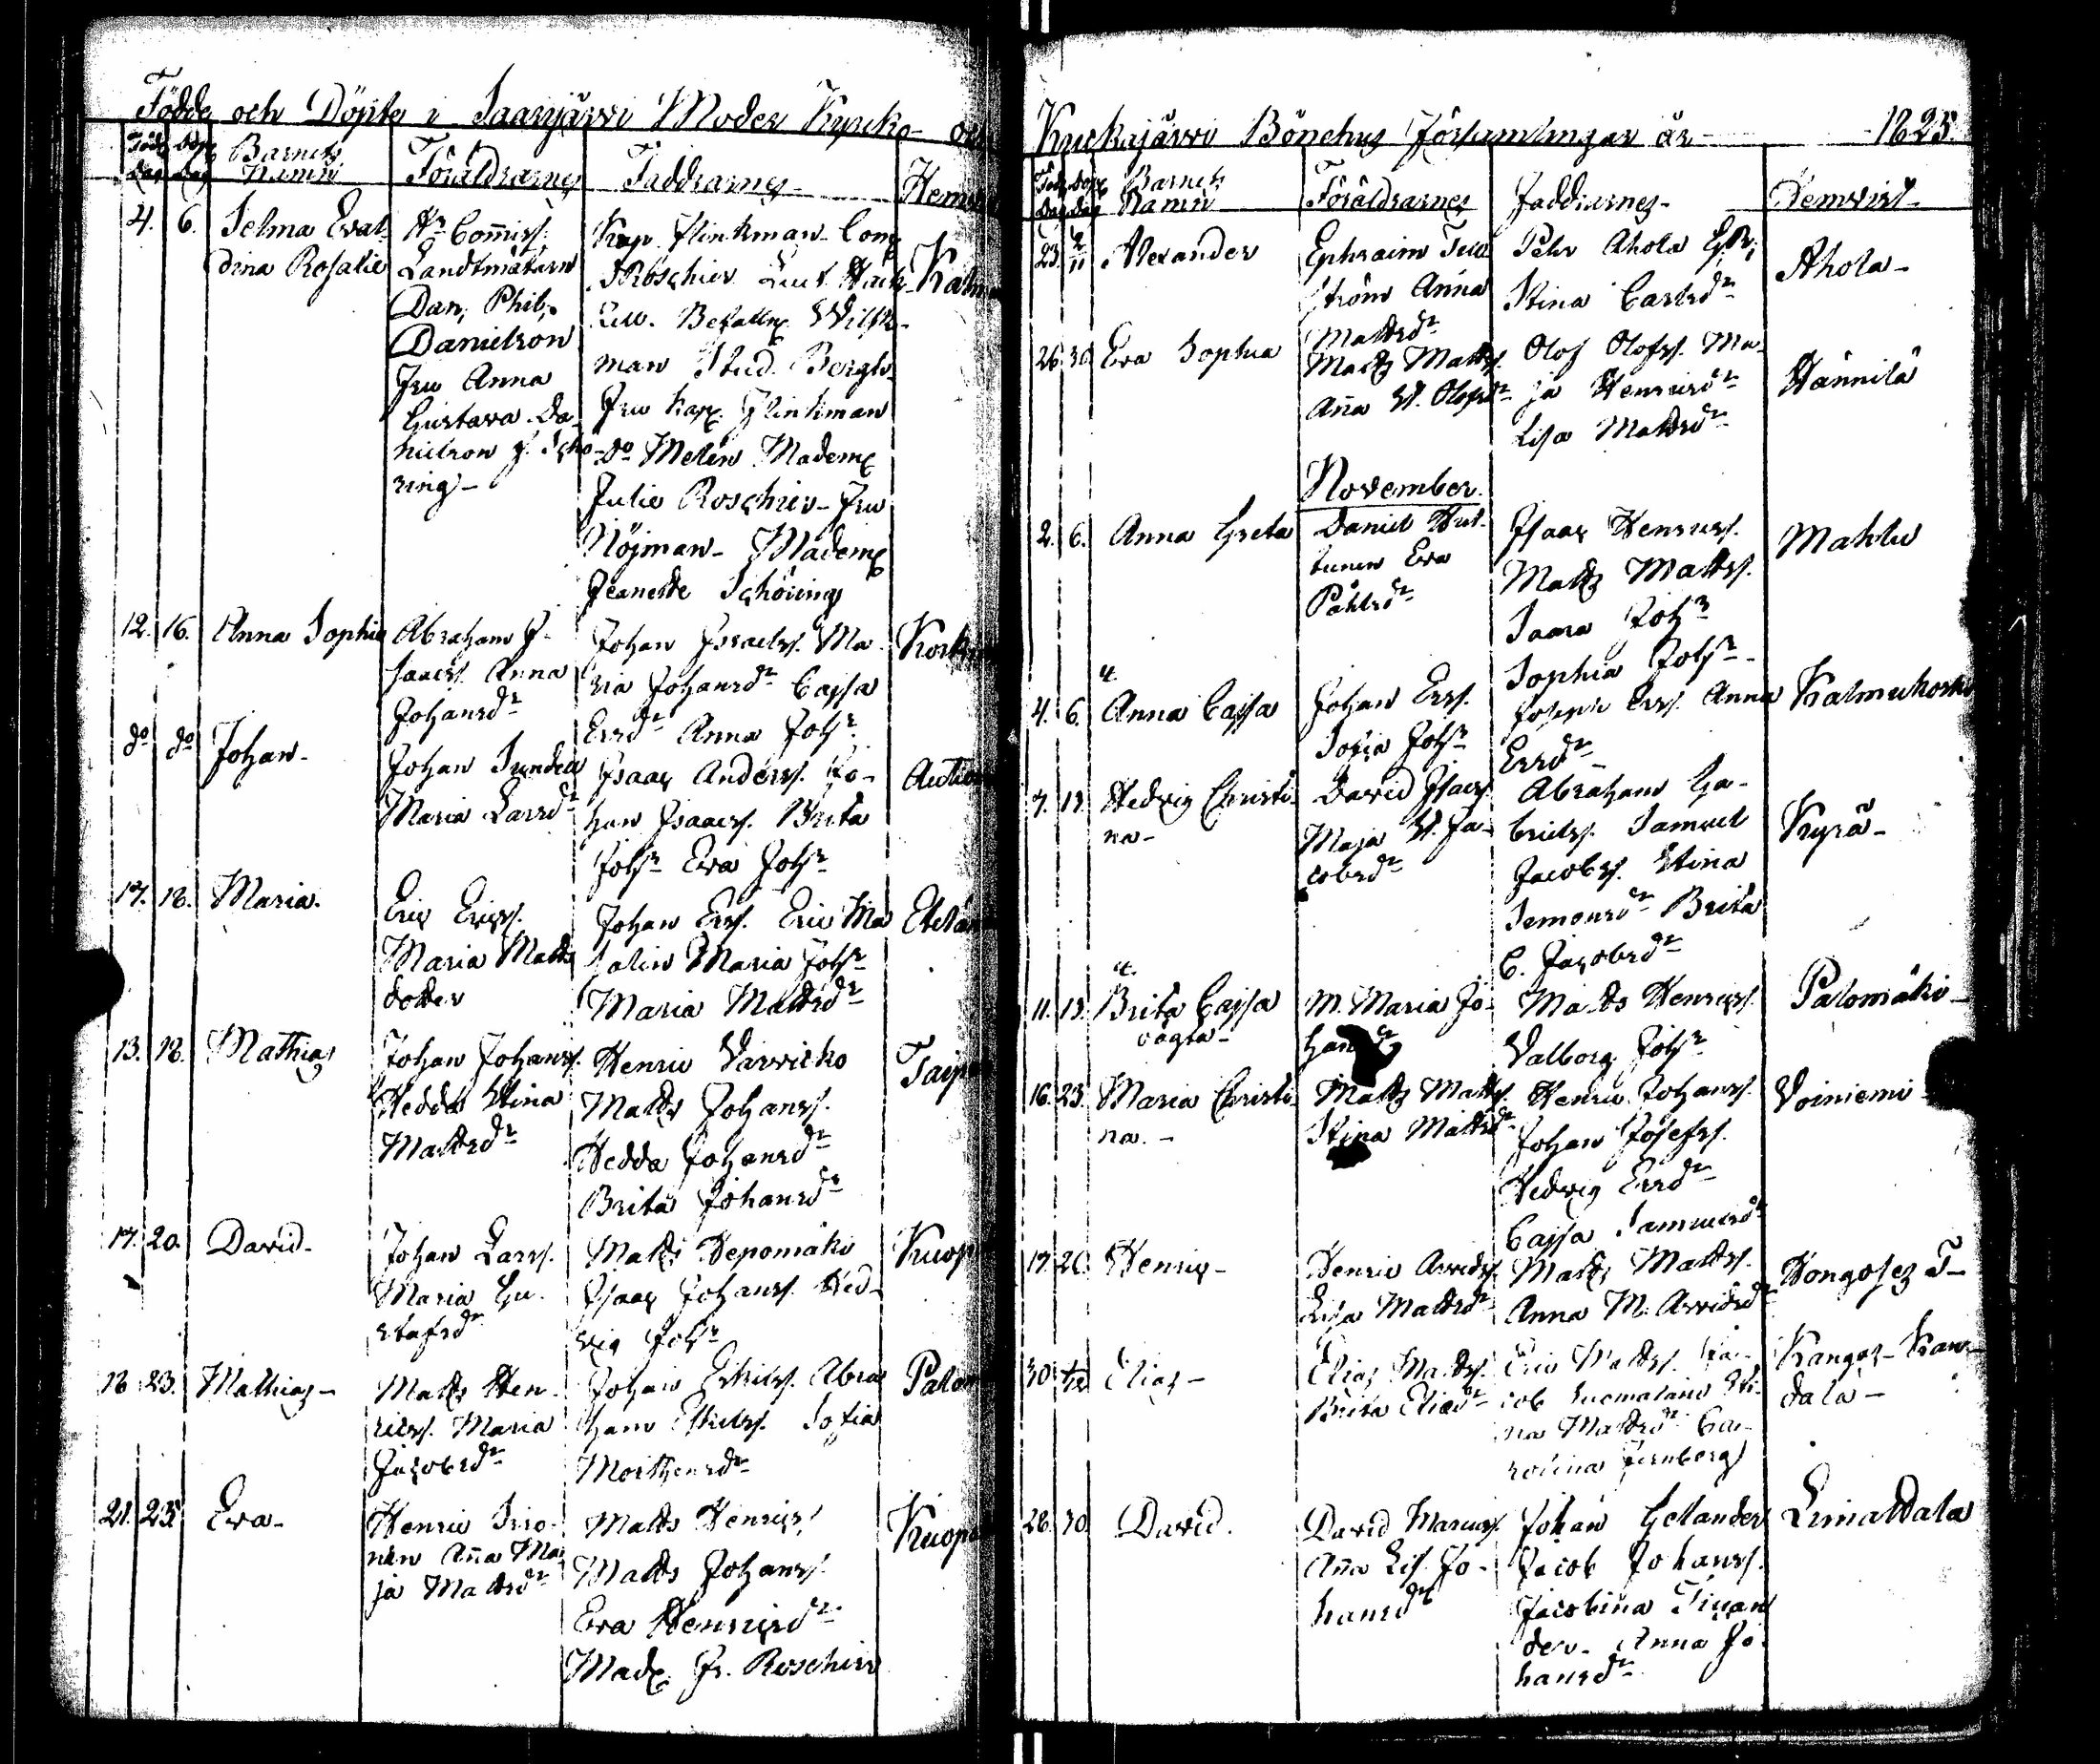 Födde och Döpte i Saarijärvi Moder Kyrko- och
Föd. Döp. Barnets Föräldrarnes Faddrarnes Hemv
Dag Dag Namn
4. 6. Selma Eval-
dina Rosalie
Hr Com̄iss.
Landtmätarn
Dan. Phil.
Danielson
Fru Anna
Gustava Da-
nielson f. Schö-
ring-
Kap. Flinkman
Roschier Lieut. Hack-
man Stud. Bergh-
Fru Kap. Flinkman
do Melén Mademe
Julie Roschier- Fru
Nöjman- Mademe
Jeanette Schöring
12. 16. Anna Sophia
Abraham I-
saacs. Anna
Johansdr
Johan Israels. Ma-
ria Johansdr Cajsa
Ersdr Anna Johsr
do do Johan-
Johan Sundell
Maria Larsdr
Isaac Anders. Jo-
han Isaacs. Brita
Johsr Eva Johsr
17. 18. Maria.
Eric Erics.
Maria Matts
dotter
Johan Ers. Eric Ma
salin Maria Johsr
Maria Mattsdr
13. 18. Mathias
Johan Johans.
Hedda Stina
Mattsdr
Henric Varricko
Matts Johans.
Hedda Johansdr
Brita Johansdr
Taip
17. 20. David-
Johan Lars.
Maria Gu-
stafsdr
Matts Hepomäki
Isaac Johans. Hed-
vig Johsr
Kuop
18 23. Mathias-
Matts Hen-
rics. Maria
Jacobsdr
Johan Eskils. Abra
ham Eskils. Sofia
Morthensdr
Palo
21. 25. Eva-
Henric
nen Ana Ma
ja Mattsdr
Matts Henrics.
Matts Johans.
Eva Henricsdr
Made. Fr. Roschier
Kuop
Kuckajärvi Bönehus Församlingar år- -1825.
Föd. Döp. Barnets Föräldrarnes Faddrarnes- Hemvist-
Dag Dag Namn
23. 2/11 Alexander
Ephraim
ström Anna
Mattsdr
Pehr Ahola
Stina Carlsdr
Ahola-
26. 30. Eva Sophia
Matts Matts.
Ana St. Olofsdr
Olof Olofs. Ma-
ja Henricsdr
Lisa Mattsdr
Hännilä
November.
2. 6. Anna Greta
Daniel Hut-
tunen Eva
Påhlsdr
Isaac Henrics.
Matts Matts.
Saara Johsr
Sophia Johsr-
Mahlu
4. 6. Anna Cajsa
Johan Ers.
Sofia Johsr
Joseph Ers. Anna
Ersdr
Kalmukoski
7. 13. Hedvig Christi-
na-
David Isacs.
Maja St. Ja-
cobsdr
Abraham Ga-
briels. Samuel
Jacobs. Stina
Semonsdr Brita
C. Jacobsdr
Kyrä-
11. 13. Brita Cajsa
oägta-
M. Maria Jo-
hansdr
Matts Henrics.
Valborg Johsr
Palomäki-
16. 23. Maria Christi-
na.-
Matts Matts.
Stina Mattsdr
Henric Johans.
Johan Josefs.
Hedvig Ersdr
Cajsa Samuelsdr
Voiniemi
17. 20. Henric-
Henric Arvids.
Lisa Mattsdr
Matts Matts.
Anna M. Arvidsdr
30. Elias-
Elias Matts.
Brita Eliasdr
Eric Matts. Ja-
cob Suomalain Sti-
na Mattsdr Ca-
rolina Fernberg
Kangas- Kan-
dala-
28. 30. David.
David Marcus.
Ana Lis. Jo-
hansdr
Johan Gelander
Jacob Johans.
Jacobina
der- Anna Jo-
hansdr
Limattala